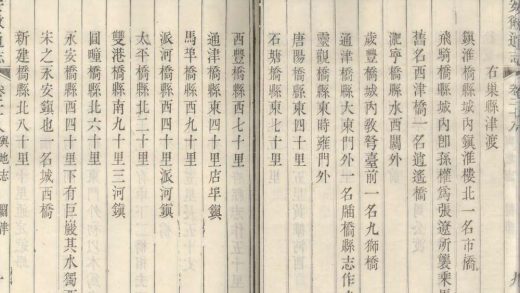 右巢縣津渡
鎮淮橋縣城內鎮淮樓北一名市橋
飛騎橋縣城內卽孫權爲張遼所襲乘馬
舊名西津橋一名逍遙橋
淝寧橋縣水西關外
歲豐橋城內教弩臺前一名九獅橋
通津橋縣大東門外一名廟橋縣志作
靈觀橋縣東時雍門外
唐陽橋縣東四十里
石塘橋縣東七十里
西豐橋縣西七十里
通津橋縣東四十里店埠鎮
馬埠橋縣西十里
派河橋縣西四十里派河鎮
太平橋縣北二十里
雙港橋縣南九十里三河鎮
圓疃橋縣北六十里
永安橋縣西四十里下有巨巖其水獨西
宋之永安鎮也一名城西橋
新建橋縣北八十里
輿地志 關津 十